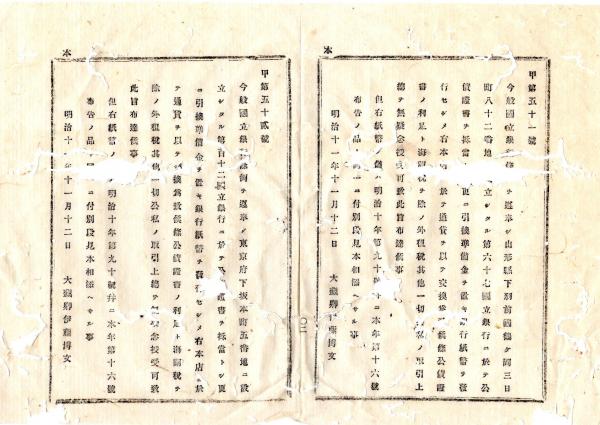 甲第五十一號
今般國立銀行條例ヲ遵奉シ山形縣下羽前國鶴ケ岡三日
町八十二番地 立シタル第六十七國立銀行ニ於テ公
債證書ヲ抵當 更ニ引換準備金ヲ置キ銀行紙幣ヲ發
行セシメ右本店 於テ通貨ヲ以テ交換 儀條公債證
書ノ利足ト海關稅ヲ除ノ外租稅其他一切 取引上
總テ無 念授受可致此旨布達 事
但右紙幣 儀ハ明治十年第九十 本年第十六號
布告ノ品 ニ付別段見本相添ヘサル事
明治十一年十一月十二日
大藏卿伊藤博文
本
甲第五十貳號
今般國立銀 條例ヲ遵奉 東京府下坂本町五番地ニ設
立シタル第百十二國立銀行ニ於テ公 證書ヲ抵當トシ更
ニ引換準備金ヲ置キ銀行紙幣ヲ發行セシメ右本店ニ於
テ通貨ヲ以テ 換爲致 儀條公債證書ノ利足ト海關稅ヲ
除ノ外租稅其他一切公私ノ取引上總テ無 念授受可致
此旨布達 事
但右紙幣ノ 明治十年第九十號 ニ本年第十六號
布告ノ品 ニ付別段見本相添ヘサル事
明治十一年十一月十二日
大藏卿伊藤博文
本